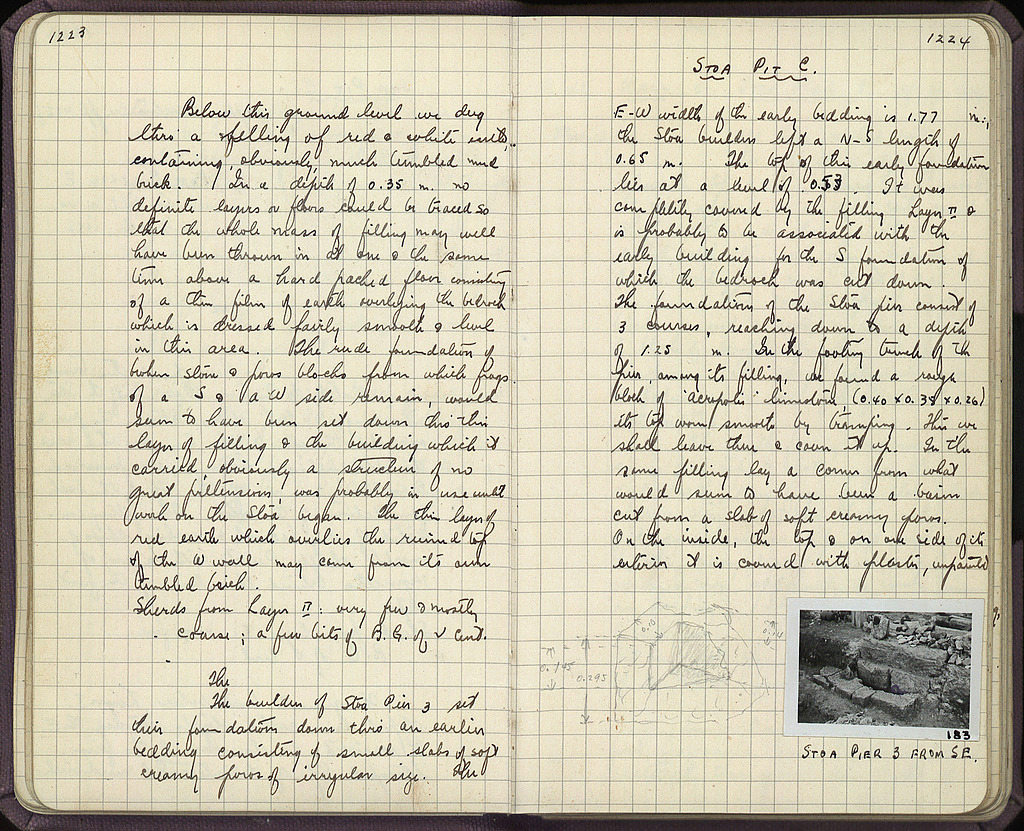 1223
Below this ground level we dug
thro' a filling of red & white earth,
containing, obviously, much tumbled mud
brick. In a depth of 0.35 m. no
definite layers or floors could be traced so
that the whole mass of filling may well
have been thrown in at one & the same
time above a hard packed floor consisting
of a thin film of earth overlying the bedrock
which is dressed fairly smooth & level
in this area. The rude foundation of
broken stone & poros blocks from which frags.
of a S & a W side remain, would
seem to have been set down thro' this
layer of filling & the building which it
carried obviously a structure of no
great pretensions, was probably in use until
work on the Stoa began. The thin layer of
red earth which overlies the ruined top
of the W wall may come from its own
tumbled brick.
Sherds from Layer II: very few & mostly
coarse; a few bits of B.G. of V cent.
The
The builders of Stoa Pier 3 set
their foundations down thro' an earlier
bedding consisting of small slabs of soft
creamy poros of irregular size. The
1224
Stoa Pit C.
E-W width of this early bedding is 1.77 m.;
the Stoa builders left a N-S length of
0.65 m. The top of this early foundation
lies at a level of 0.53. It was
completely covered by the filling Layer II &
is probably to be associated with the
early building for the S foundation of
which the bedrock was cut down.
The foundations of the Stoa pier consist of
3 courses, reaching down to a depth
of 1.25 m. In the footing trench of the
pier, among its filling, we found a rough
block of 'acropolis' limestone, (0.40 x 0.38 x 0.26)
its top worn smooth by tramping. This we
shall leave there & cover it up. In the
same filling lay a corner from what
would seem to have been a basin
cut from a slab of soft creamy poros.
On the inside, the top & on one side of its
exterior it is covered with plaster, unpainted
0.145
0.295
183
STOA PIER 3 FROM SE.